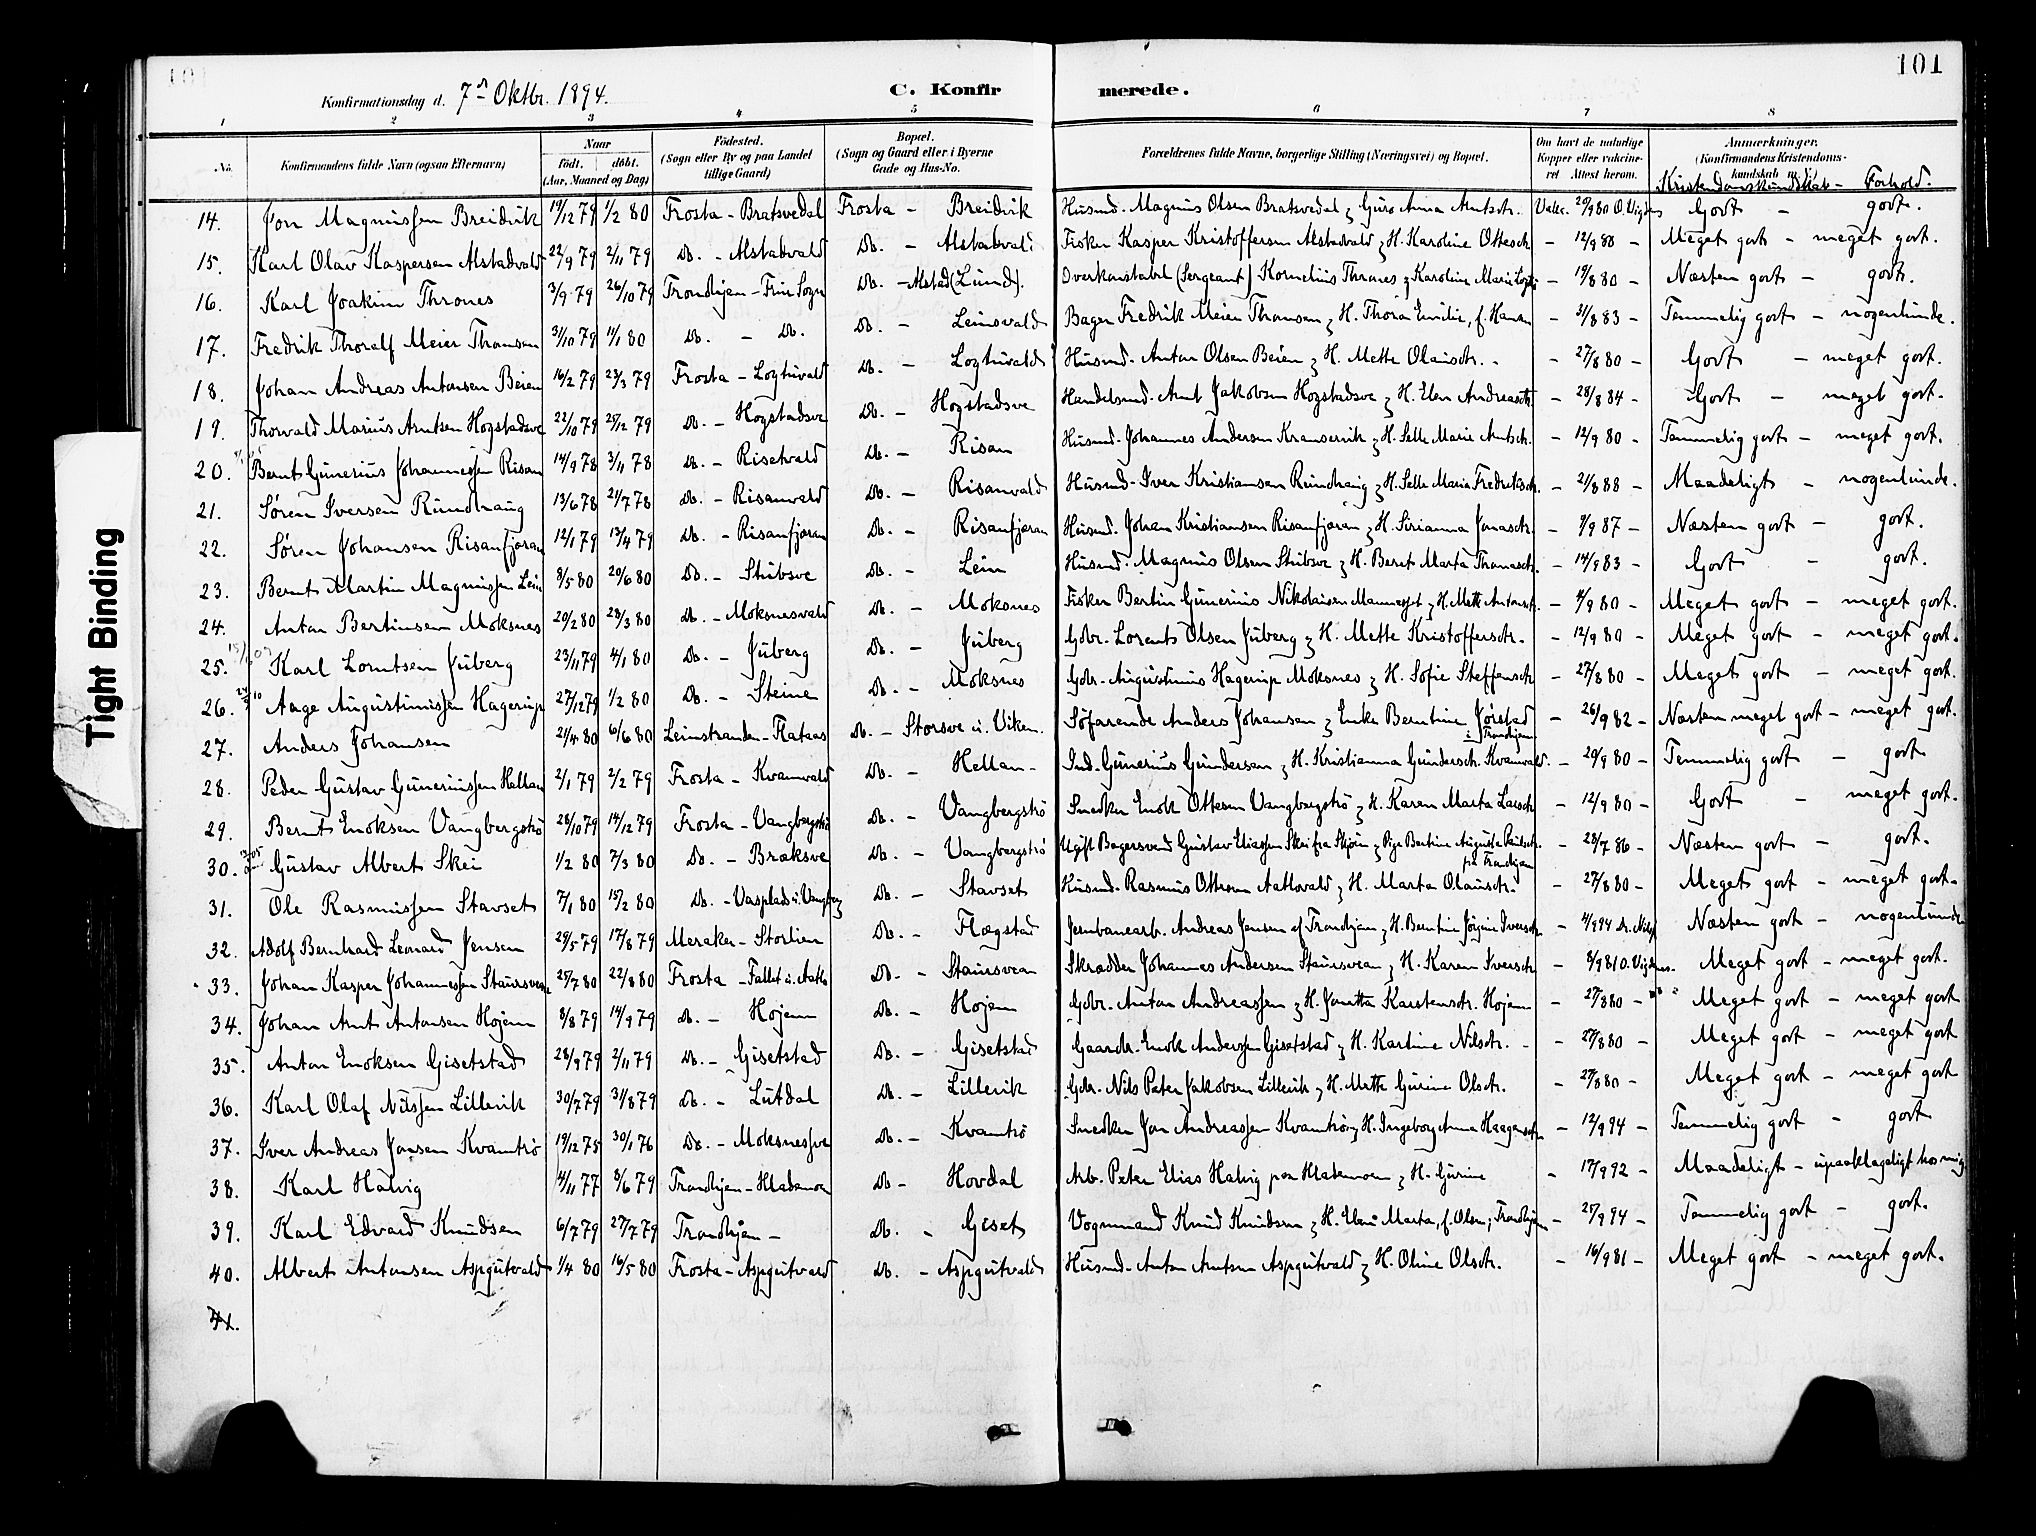 101
Konfirmationsdag d. 7de Oktbr. 1894.
C. Konfirmerede.
1 2 3 4 5 6 7 8
No. Konfirmandens fulde Navn (ogsaa Efternavn) Naar födt. döbt. (Aar, Maaned og Dag) Födested. (Sogn eller By og paa Landet tillige Gaard) Bopæl. (Sogn og Gaard eller i Byerne Gade og Hus-No. Forældrenes fulde Navne, borgerlige Stilling (Næringsvei) og Bopæl. Om havt de naturlige Kopper eller vaccineret Attest herom. Anmærkninger. (Konfirmandens Kristendomskundskab m. v.)
Kristendomskundskab - Forhold.
14. Jon Magnussen Breidvik 19/12 79 1/2 80 Frosta - Bratsvedal Frosta - Breidvik Husmd. Magnus Olsen Bratsvedal & Guro Anna Arntsdtr. Vakc. 20/9 80 Godt - godt.
15. Karl Olav Kaspersen Alstadvald 22/9 79 2/11 79 Do. - Alstadvald Do. - Alstadvald Fisker Kasper Kristoffersen Alstadvald & H. Karoline Ottesdtr. - 12/9 80 - Meget godt - meget godt.
16. Karl Joakim Thrones 3/9 79 26/10 79 Trondhjem - Frue Sogn Do. - Alstad (Lund). Overkonstabel (Sergeant) Kornelius Thrones & Karoline Marie - 19/8 80 - Næsten godt - godt.
17. Fredrik Thoralf Meier Thomsen 31/10 79 11/1 80 Do. - Do. Do. - Leinsvald Bager Fredrik Meier Thomsen & H. Thora Emilie, f. Hansen - 31/8 83 - Temmelig godt - nogenlunde.
18. Johan Andreas Antonsen Beien 16/2 79 23/3 79 Frosta - Logtuvald Do. - Logtuvald Husmd. Anton Olsen Beien & H. Mette Olausdtr. - - 27/8 80 - Godt - meget godt.
19. Thorvald Marius Arntsen Hogstadsve 22/10 79 25/12 79 Do. - Hogstadsve Do. - Hogstadsve Handelsmd. Arnt Jakobsen Hogstadsve & H. Elen Andreasdtr. - 28/8 84 - Godt - meget godt.
20. Bernt Gunerius Johannessen Risan 14/9 78 3/11 78 Do. - Risetvald Do. - Risan Husmd. Johannes Andersen & H. Selle Marie Arntsdtr. - 12/9 80 - Temmelig godt - meget godt.
21. Søren Iversen Rundhaug 13/6 78 21/7 78 Do. - Risanvald Do. - Risanvald Husmd. Iver Kristiansen Rundhaug & H. Selle Maria Fredriksdtr. - 21/8 88 - Maadeligt - nogenlunde.
22. Søren Johansen Risanfjæran 12/1 79 13/4 79 Do. - Risanfjæran Do. - Risanfjæran Husmd. Johan Kristiansen Risanfjæran & H. Sirianna Jonasdtr. - 9/9 87 - Næsten godt - godt.
23. Bernt Martin Magnussen Lein 8/5 80 20/6 80 Do. - Stubsve Do. - Lein Husmd. Magnus Olsen Stubsve & H. Beret Marta Thomasdtr. - 14/9 83 - Godt - godt.
24. Anton Bertinsen Moksnes 20/2 80 28/3 80 Do. - Moksnesvald Do. - Moksnes Fisker Bertin Gunerius Nikolaisen & H. Mette Antonsdtr. - 11/9 80 - Meget godt - meget godt.
25. Karl Lorntsen Juberg 23/11 79 4/1 80 Do. - Juberg Do. - Juberg Gdbr. Lorents Olsen Juberg & H. Mette Kristoffersdtr. - 12/9 80 - Meget godt - meget godt.
26. Aage Augustinussen Hagerup 27/12 79 1/2 80 Do. - Steine Do. - Moksnes Gdbr. Augustinus Hagerup Moksnes & H. Sofie Steffensdtr - 27/8 80 - Meget godt - meget godt.
27. Anders Johansen 21/4 80 6/6 80 Leinstranden - Flataas Do. - Storsve u. Viken. Søfarende Anders Johansen & Enke Berntine Jørstad i Trondhjem - 26/9 82 - Næsten meget godt - meget godt.
28. Peder Gustav Guneriussen Hellan 2/1 79 2/2 79 Frosta - Kvamvald Do. - Hellan - Ind. Gunerius Gundersen & H. Kristianna Gundersdtr. Kvamvald. - 20/9 80 - Temmelig godt - godt
29. Bernt Enoksen Vangbergstrø 28/10 79 14/12 79 Frosta - Vangbergstrø Do. - Vangbergstrø Snedker Enok Ottesen Vangbergstrø & H. Karen Marta Larsdtr - 12/9 80 - Godt - meget godt.
30. Gustav Albert Skei 1/2 80 7/3 80 Do. - Braksve Do. - Vangbergstrø Ugift Bagersvend Gustav Eliassen Skei fra & Pige Bertine Auguste fra Trondhjem - 28/7 86 - Næsten godt - godt.
31. Ole Rasmussen Stavset 7/1 80 15/2 80 Do. - Vasplads u. Vangberg Do. - Stavset Husmd. Rasmus Ottesen Aatlovald & H. Marta Olausdtr. - 27/8 80 - Meget godt - meget godt.
32. Adolf Bernhard Leonard Jensen 29/5 79 17/8 79 Meraker - Storlien Do. - Flægstad Jernbanearb. Andreas Jensen af Trondhjem & H. Berntine Jørgine Iversdtr - 4/9 94 Næsten godt - nogenlunde
33. Johan Kasper Johannessen Staursvean 25/7 80 22/8 80 Frosta - Fallet u. Aatlo Do. - Staursvean Skrædder Johannes Andersen Staursvean & H. Karen Iversdtr - 8/9 81 Meget godt - meget godt.
34. Johan Arnt Antonsen Hojem 8/8 79 14/9 79 Do. - Hojem Do. - Hojem Gdbr. Anton Andreassen & H. Jonetta Karstensdtr. Hojem - 27/8 80 - Meget godt - meget godt
35. Anton Enoksen Gisetstad 28/9 79 2/11 79 Do. - Gisetstad Do. - Gisetstad Gaardbr. Enok Anderssen Gisetstad & H. Kartine Nilsdtr. - - 27/8 80 - Meget godt - meget godt
36. Karl Olaf Nilssen Lillevik 30/7 79 31/8 79 Do. - Lutdal Do. - Lillevik Gdbr. Nils Peter Jakobsen Lillevik & H. Mette Gurine Olsdtr. - 27/8 80 - Meget godt - meget godt
37. Iver Andreas Jonsen Kvamtrø 19/12 75 30/1 76 Do. - Moksnessve Do. - Kvamtrø Snedker Jon Andreassen Kvamtrø & H. Ingeborg Anna Haagensdtr - 12/9 94 - Temmelig godt - godt
38. Karl Halvig 14/11 77 8/6 79 Trondhjem - Hladomoen Do. - Hovdal Arb. Peter Elias Halvig paa Hladomoen & H. Gurine - 17/9 92 - Maadeligt - upaaklageligt hos mig.
39. Karl Edvard Knudsen 6/7 79 27/7 79 Trondhjem - Do. - Giset Vognmand Knud Knudsen & H. Elen Marta, f. Olsen, Trondhjem - 25/9 94 - Temmelig godt - godt.
40. Albert Antonsen Aspgutvald 1/4 80 16/5 80 Frosta - Aspgutvald Do. - Aspgutvald Husmd. Anton Arntsen Aspgutvald & H. Oline Olsdtr. - 16/9 81 - Meget godt - meget godt.
41.
Tight Binding